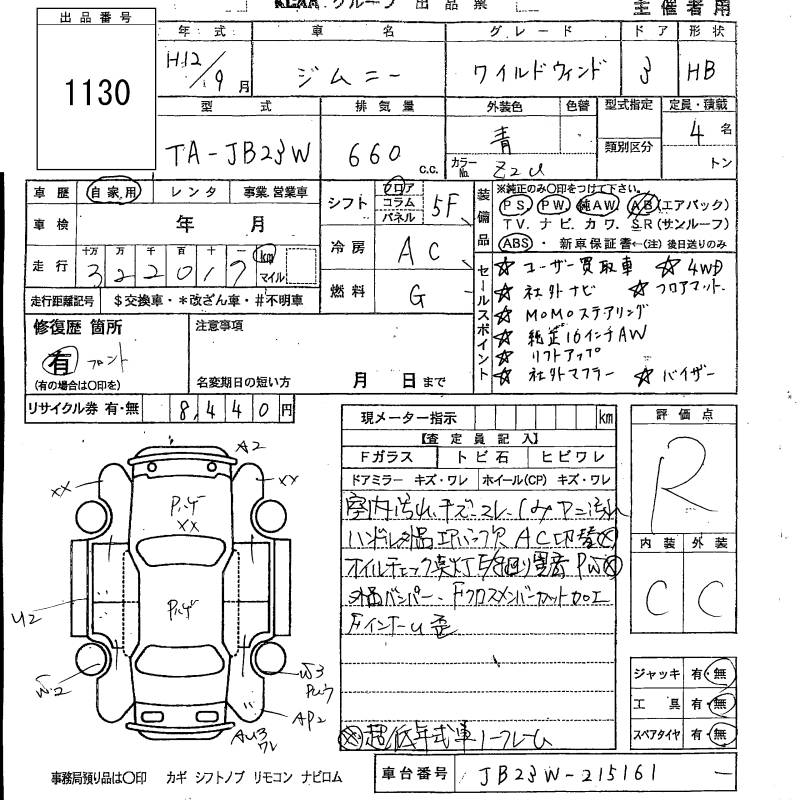 KCAA グループ 出品票
主催者用
出品番号
1130
年式 車名 グレード ドア 形状
H12/9月 ジムニー ワイルドウィンド 3 HB
型式 排気量 外装色 色替 型式指定 定員・積載
類別区分
TA-JB23W 660 c.c. 青 4名
カラーNo. Z2U トン
車歴 自家用 レンタ 事業.営業車
車検 年 月
十万 万 千 百 十 一
走行 322017 km マイル
走行距離記号 $交換車・*改ざん車・#不明車
シフト フロア コラム パネル 5F
冷房 AC
燃料 G
装備品
※純正のみ○印をつけて下さい。
PS. PW. 純AW. AB(エアバック)
TV. ナビ. カワ. SR(サンルーフ)
ABS ・ 新車保証書←(注) 後日送りのみ
セールスポイント
☆ ユーザー買取車 ☆ 4WD
☆ 社外ナビ ☆ フロアマット.
☆ MOMOステアリング
☆ 純正16インチAW
☆ リフトアップ
☆ 社外マフラー ☆ バイザー
修復歴 箇所
有 フロント
(有の場合は○印を)
注意事項
名変期日の短い方 月 日まで
リサイクル券 有・無 8,440円
現メーター指示 km
【査定員記入】
Fガラス トビ石 ヒビワレ
ドアミラー キズ・ワレ ホイール(CP) キズ・ワレ
室内汚れ.キズ.コレ.
AC切替
オイルチェック点灯 PW
外品バンパー. Fクロスメンバーカット加工
Fインナー 歪
超低年式車ノークレーム
評価点
R
内装 外装
C C
ジャッキ 有・無
工具 有・無
スペアタイヤ 有・無
A2
XX XX
XX
U2
W2
W3
AP2
AU3
ワレ
事務局預り品は○印 カギ シフトノブ リモコン ナビロム
車台番号 JB23W-215161 ー